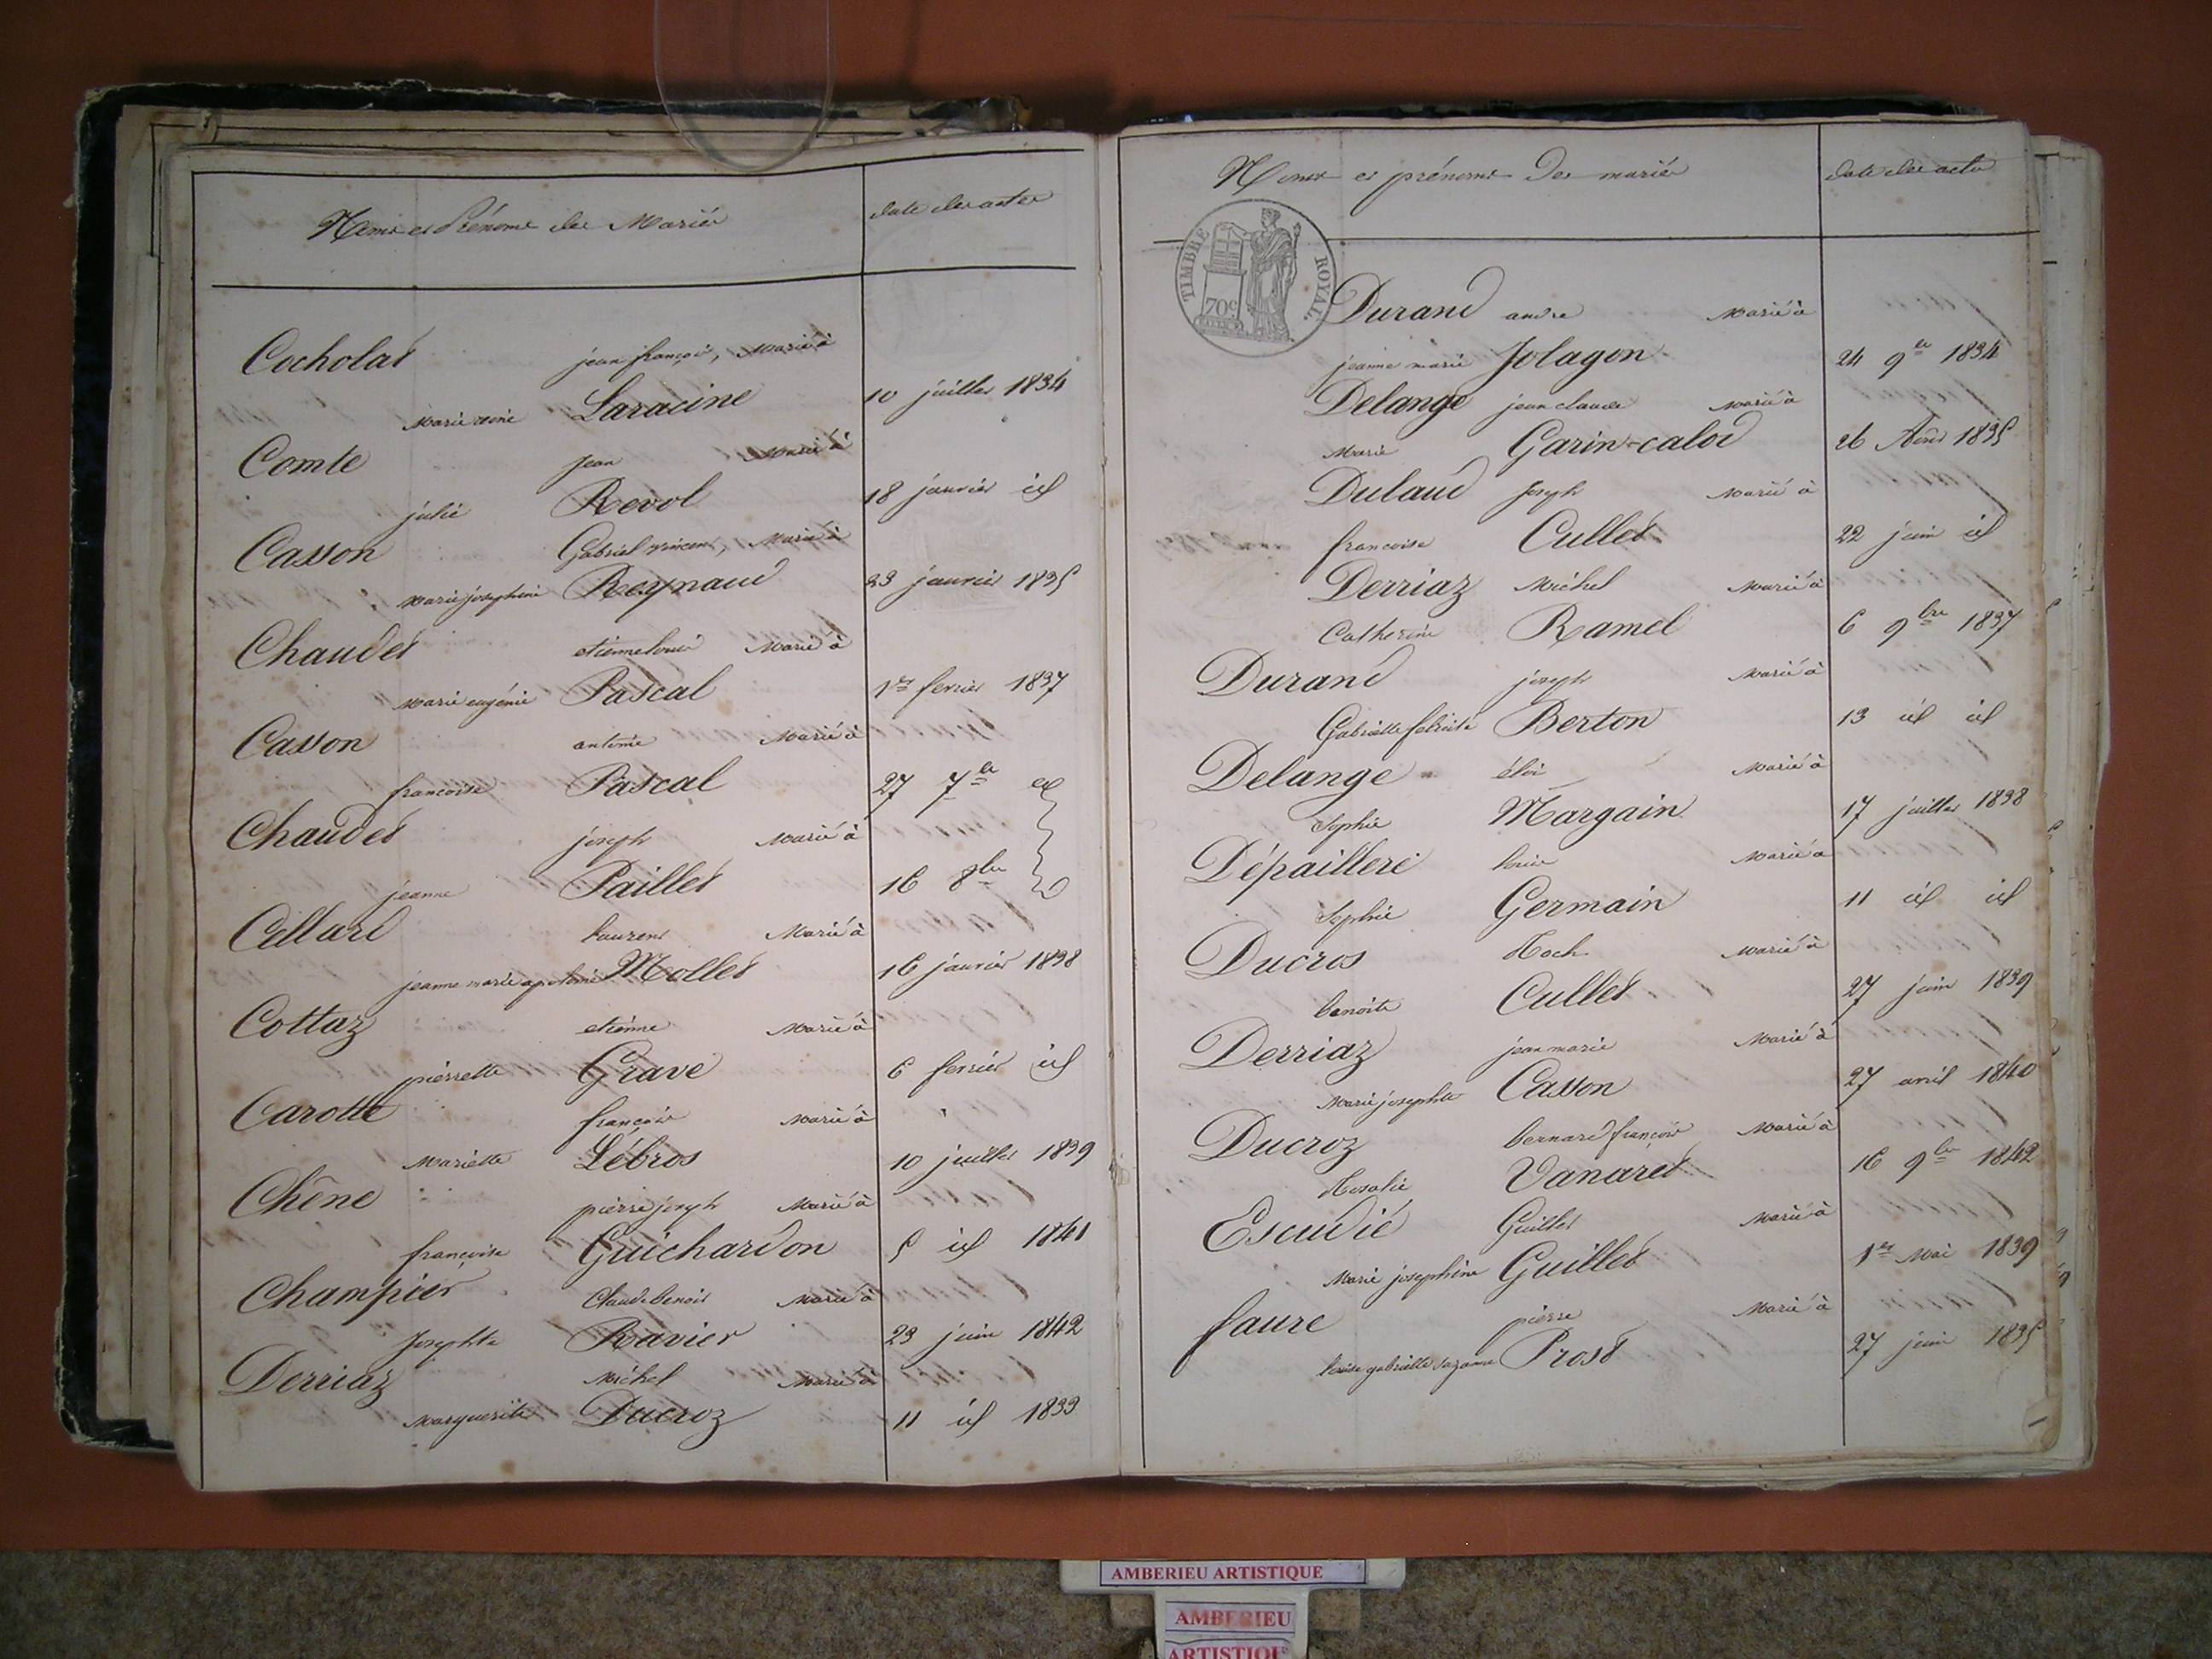 Noms et Prénoms des Mariés
date des actes
Cocholat jean françois, Marié à
Marie reine Laracine 10 juillet 1834
Comte jean Marié à
julie Revol 18 janvier id
Casson Gabriel vincent, Marié à
Marie josephine Reynaud 23 janvier 1835
Chaudet etienne louis Marié à
Marie eugénie Pascal 1er fevrier 1837
Casson antoine Marié à
francoise Pascal 27 7bre id
Chaudet joseph Marié à
jeanne Paillet 16 8bre id
Cellard laurent Marié à
jeanne marie apolonie Mollet 16 janvier 1838
Cottaz etienne Marié à
pierrette Grave 6 fevrier id
Carotte françois Marié à
Mariette Lébros 10 juillet 1839
Chêne pierre joseph Marié à
françoise Guichardon 5 id 1841
Champier Claude benoit Marié à
Josephte Ravier 23 juin 1842
Derriaz Michel Marié à
Marguerite Ducroz 11 id 1833
Noms et prénoms des mariés
date des actes
TIMBRE ROYAL.
70c
Durand andre Marié à
jeanne marie Jolagon 24 9bre 1834
Delange jean claude Marié à
Marie Garin-calod 26 Aout 1835
Dulaud Joseph Marié à
francoise Cullet 22 juin id
Derriaz Michel Marié à
Catherine Ramel 6 9bre 1837
Durand joseph Marié à
Gabrielle felicité Berton 13 id id
Delange éloi Marié à
Sophie Margain 17 juillet 1838
Dépaillere louis Marié à
Sophie Germain 11 id id
Ducros Roch Marié à
benoite Cullet 27 juin 1839
Derriaz jean marie Marié à
Marie josephte Casson 27 avril 1840
Ducroz bernard françois Marié à
Rosalie Vanaret 16 9bre 1842
Escudié Guillet Marié à
Marie josephine Guillet 1er Mai 1839
faure pierre Marié à
louise gabrielle suzanne Prost 27 juin 1835
AMBERIEU ARTISTIQUE
AMBERIEU
ARTISTIQUE